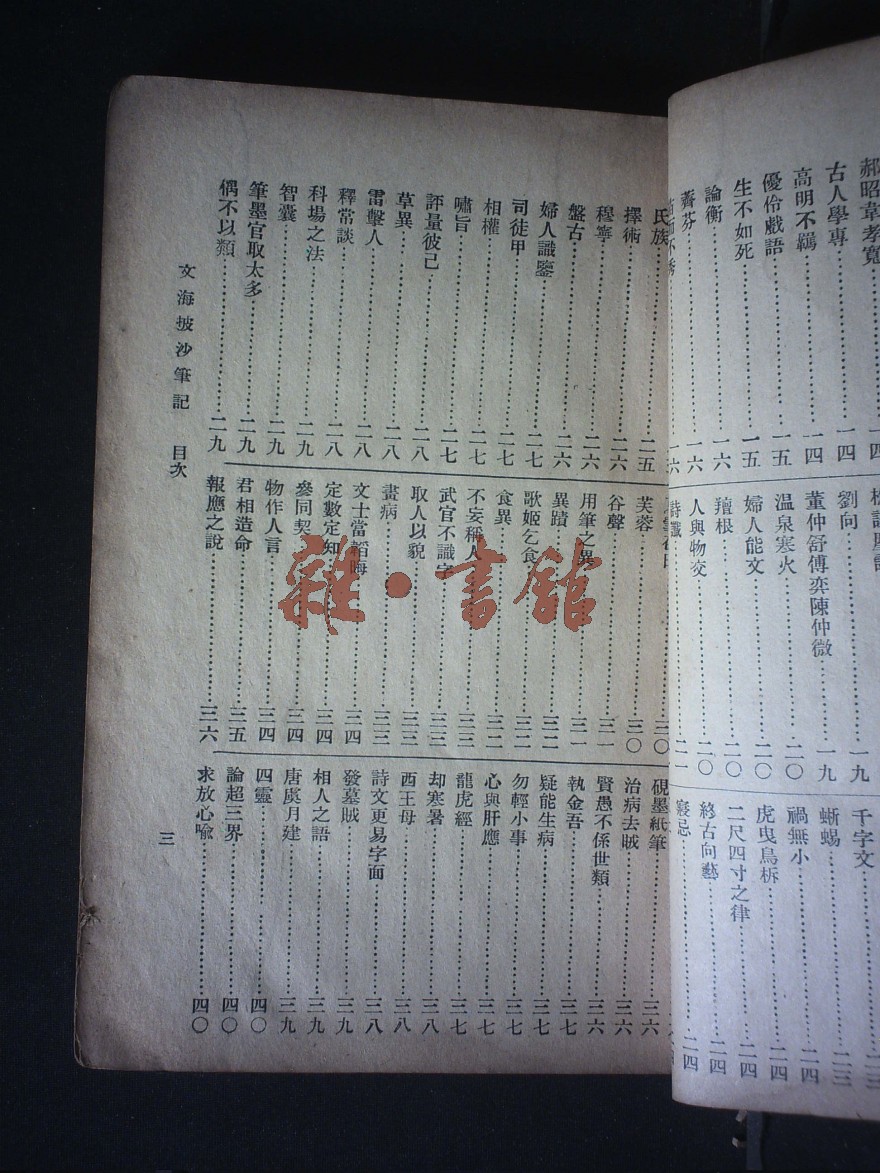 郝昭韋孝寬……一四
古人學專……一四
高明不羈……一四
優伶戲語……一五
生不如死……一五
論衡……一六
薺芬……一六
一六
劉向……一九
董仲舒傅奕陳仲微……一九
温泉寒火……二〇
婦人能文……二〇
羶根……二〇
人與物交……二〇
詩讖……二一
千字文……二三
蜥蜴……二三
禍無小……二四
虎曳鳥柝……二四
二尺四寸之律……二四
終古向藝……二四
寢忌……二四
氏族……二五
擇術……二六
穆寧……二六
盤古……二六
婦人識鑒……二七
司徒甲……二七
相權……二七
嘯旨……二七
評量彼己……二七
草異……二八
雷擊人……二八
釋常談……二八
科場之法……二八
智囊……二九
筆墨官取太多……二九
偶不以類……二九
三〇
芙蓉……三〇
谷聲……三一
用筆之異……三一
異蹟……三二
歌姬乞食……三二
食異……三二
不妄稱人……三三
武官不識字……三三
取人以貌……三三
畫病……三三
文士當韜晦……三四
定數定知……三四
參同契……三四
物作人言……三四
君相造命……三五
報應之說……三六
硯墨紙筆……三六
治病去賊……三六
賢愚不係世類……三六
執金吾……三七
疑能生病……三七
勿輕小事……三七
心與肝應……三七
龍虎經……三七
却寒暑……三八
西王母……三八
詩文更易字面……三八
發墓賊……三九
相人之語……三九
唐虞月建……三九
四靈……四〇
論超三界……四〇
求放心喩……四〇
文海披沙筆記 目次
三
雜·書館